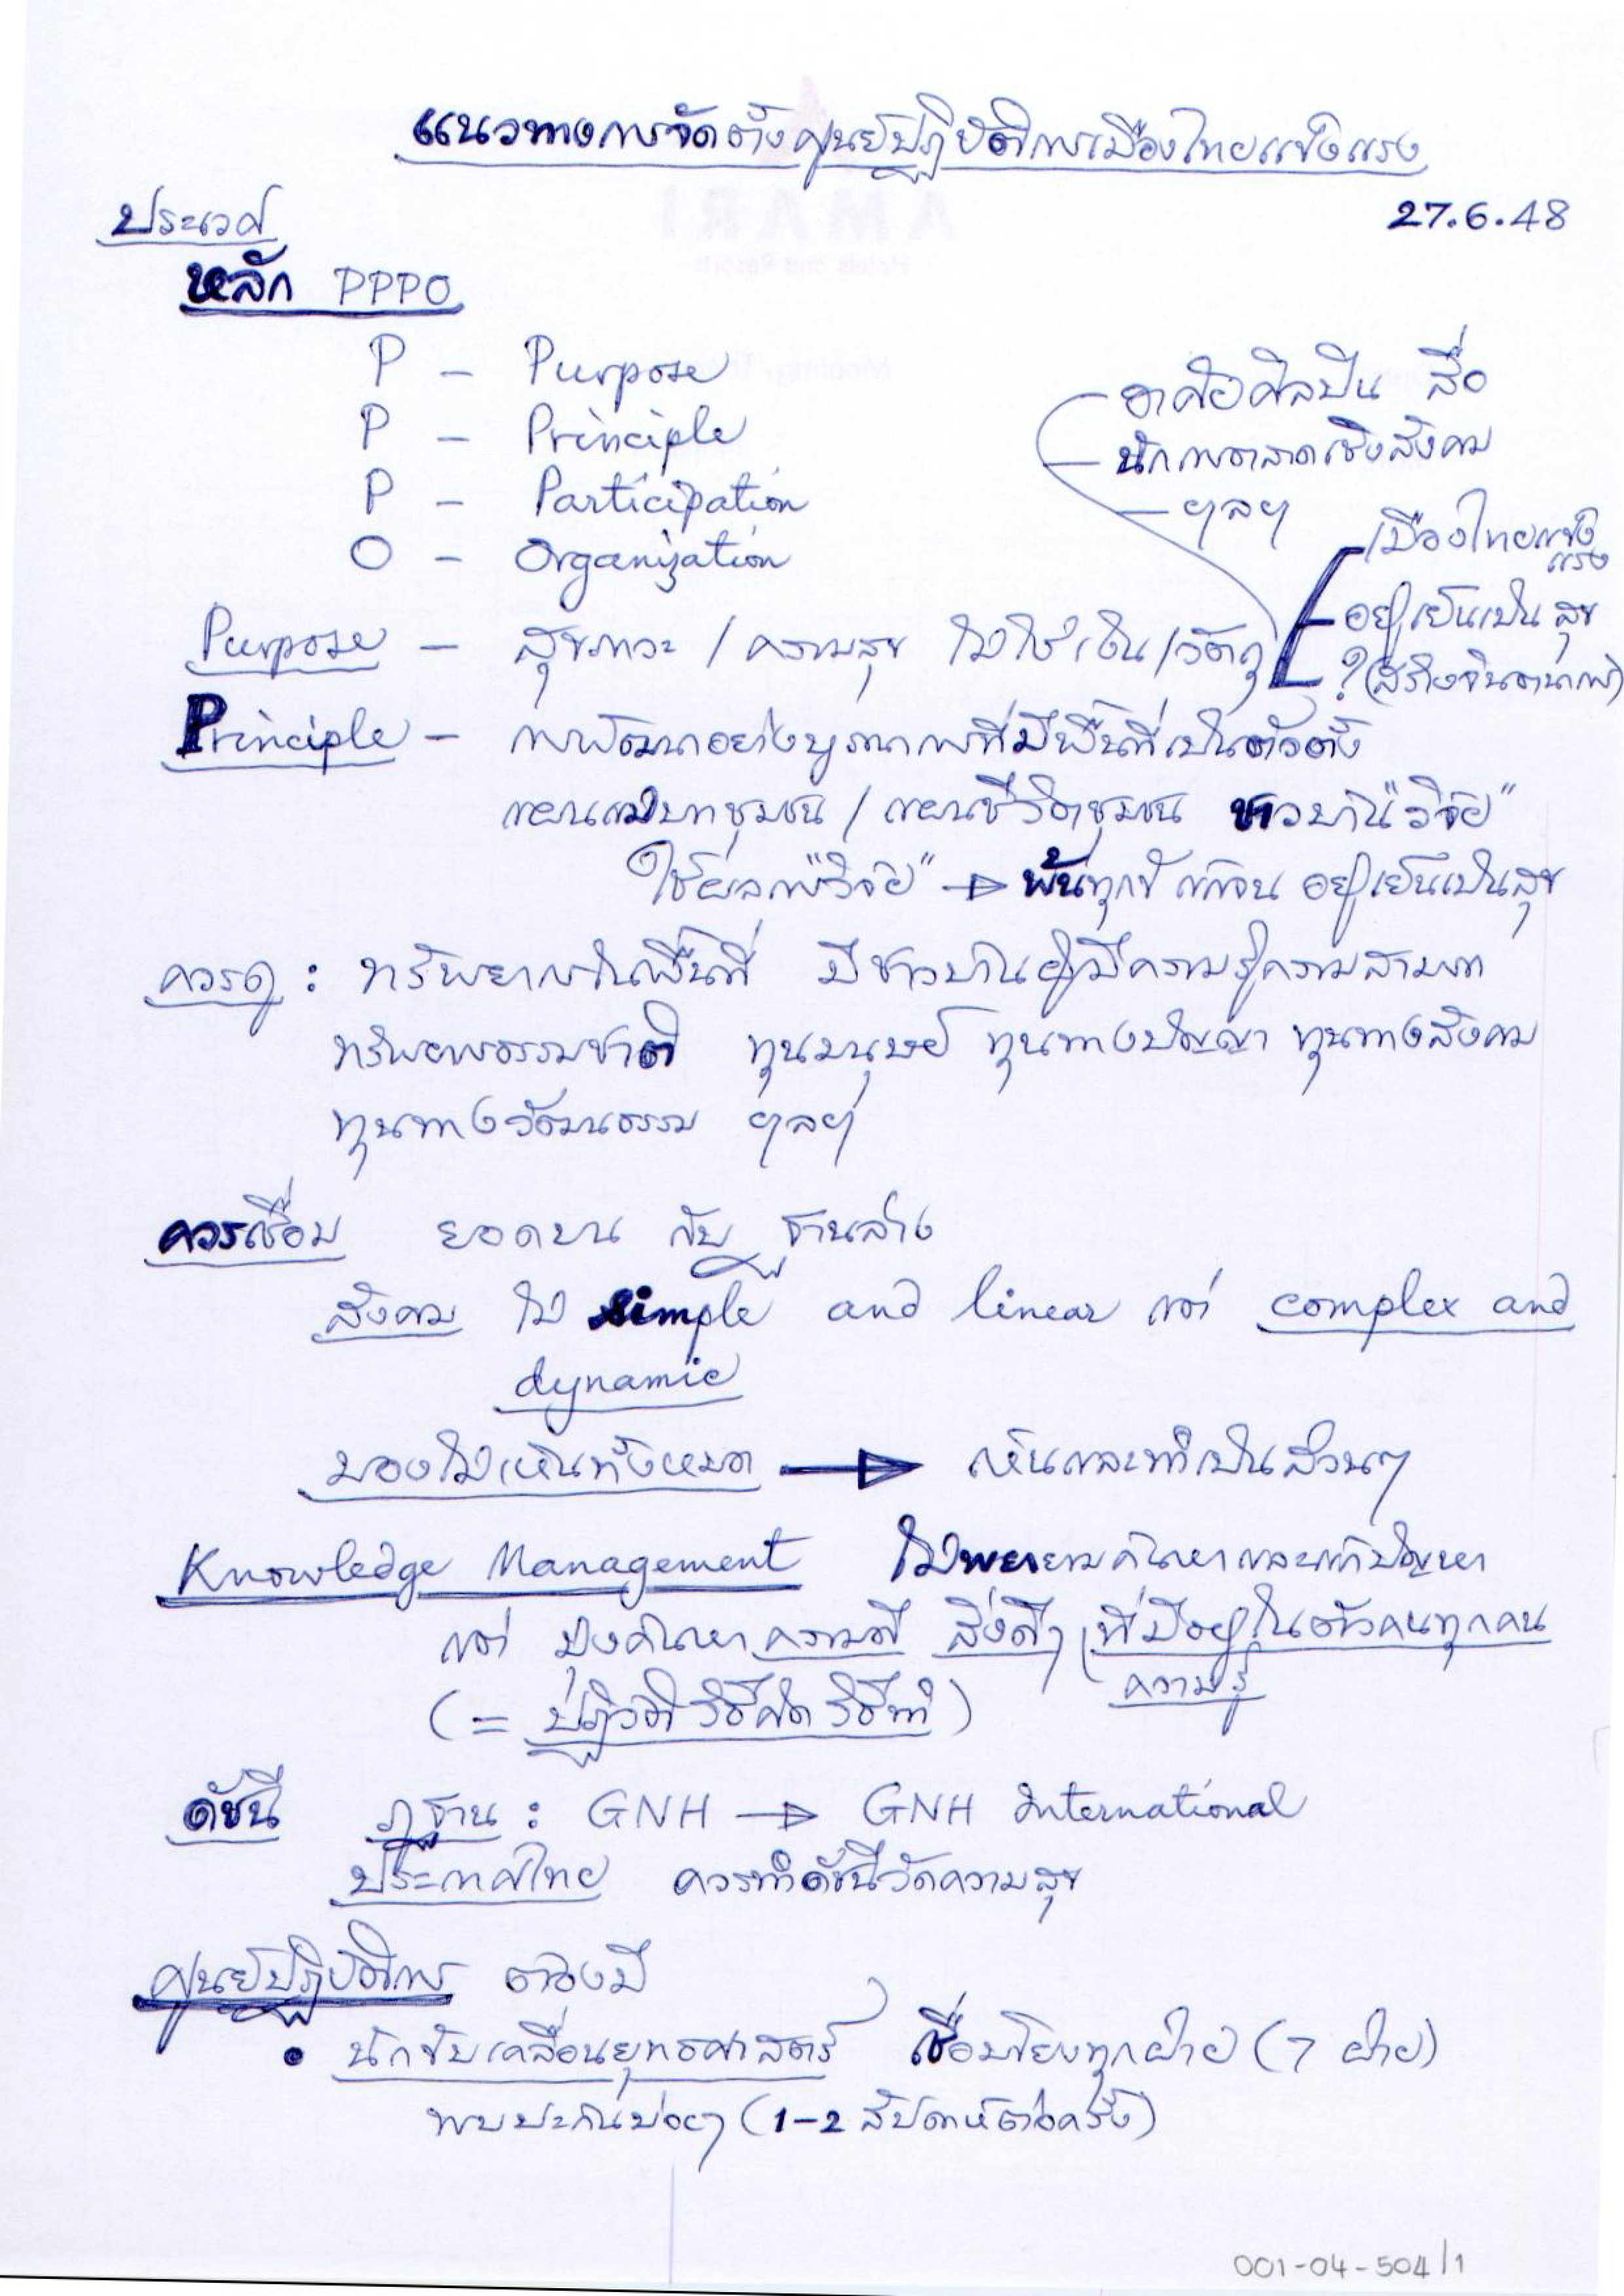 แนวทางการจัดตั้งศูนย์ปฏิบัติการเมืองไทยแข็งแรง
27.6.48
ประเวศ
หลัก PPPO
P – Purpose
P – Principle
P – Participation
O – Organization
– อาศัยศิลปิน สื่อ
– นักการตลาดเชิงสังคม
– ฯลฯ
Purpose – สุขภาวะ / ความสุข ไม่ใช่เงิน/วัตถุ
เมืองไทยแข็งแรง
อยู่เย็นเป็นสุข
? (สร้างจินตนาการ)
Principle – การพัฒนาอย่างบูรณาการที่มีพื้นที่เป็นตัวตั้ง
แผนแม่บทชุมชน / แผนชีวิตชุมชน ชาวบ้าน "วิจัย"
ใช้ผลการ "วิจัย" → พ้นทุกข์ พ้นจน อยู่เย็นเป็นสุข
ควรดู : ทรัพยากรในพื้นที่ มีชาวบ้านผู้มีความรู้ความสามารถ
ทรัพยากรธรรมชาติ ทุนมนุษย์ ทุนทางปัญญา ทุนทางสังคม
ทุนทางวัฒนธรรม ฯลฯ
ควรเชื่อม ยอดบน กับ ฐานล่าง
สังคม ไม่ simple and linear แต่ complex and
dynamic
มองไม่เห็นทั้งหมด → เห็นและทำเป็นส่วนๆ
Knowledge Management ไม่พยายามค้นหาและแก้ปัญหา
แต่ มุ่งค้นหาความดี สิ่งดีๆ ที่มีอยู่ในตัวคนทุกคน
ความรู้
(= ปฏิวัติวิธีคิด วิธีทำ)
ดัชนี ภูฐาน : GNH → GNH International
ประเทศไทย ควรทำดัชนีวัดความสุข
ศูนย์ปฏิบัติการ ต้องมี
• นักขับเคลื่อนยุทธศาสตร์ เชื่อมโยงทุกฝ่าย (7 ฝ่าย)
พบปะกันบ่อยๆ (1-2 สัปดาห์ต่อครั้ง)
001-04-504/1